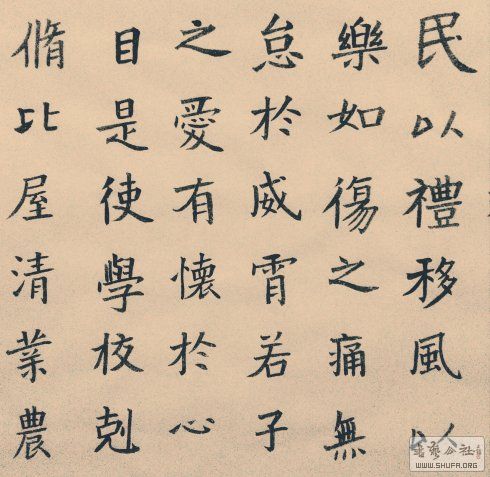 民以禮移風以
樂如傷之痛無
怠於威霄若子
之愛有懷於心
目是使學校剋
脩比屋清業農
書藝公社
WWW.SHUFA.ORG